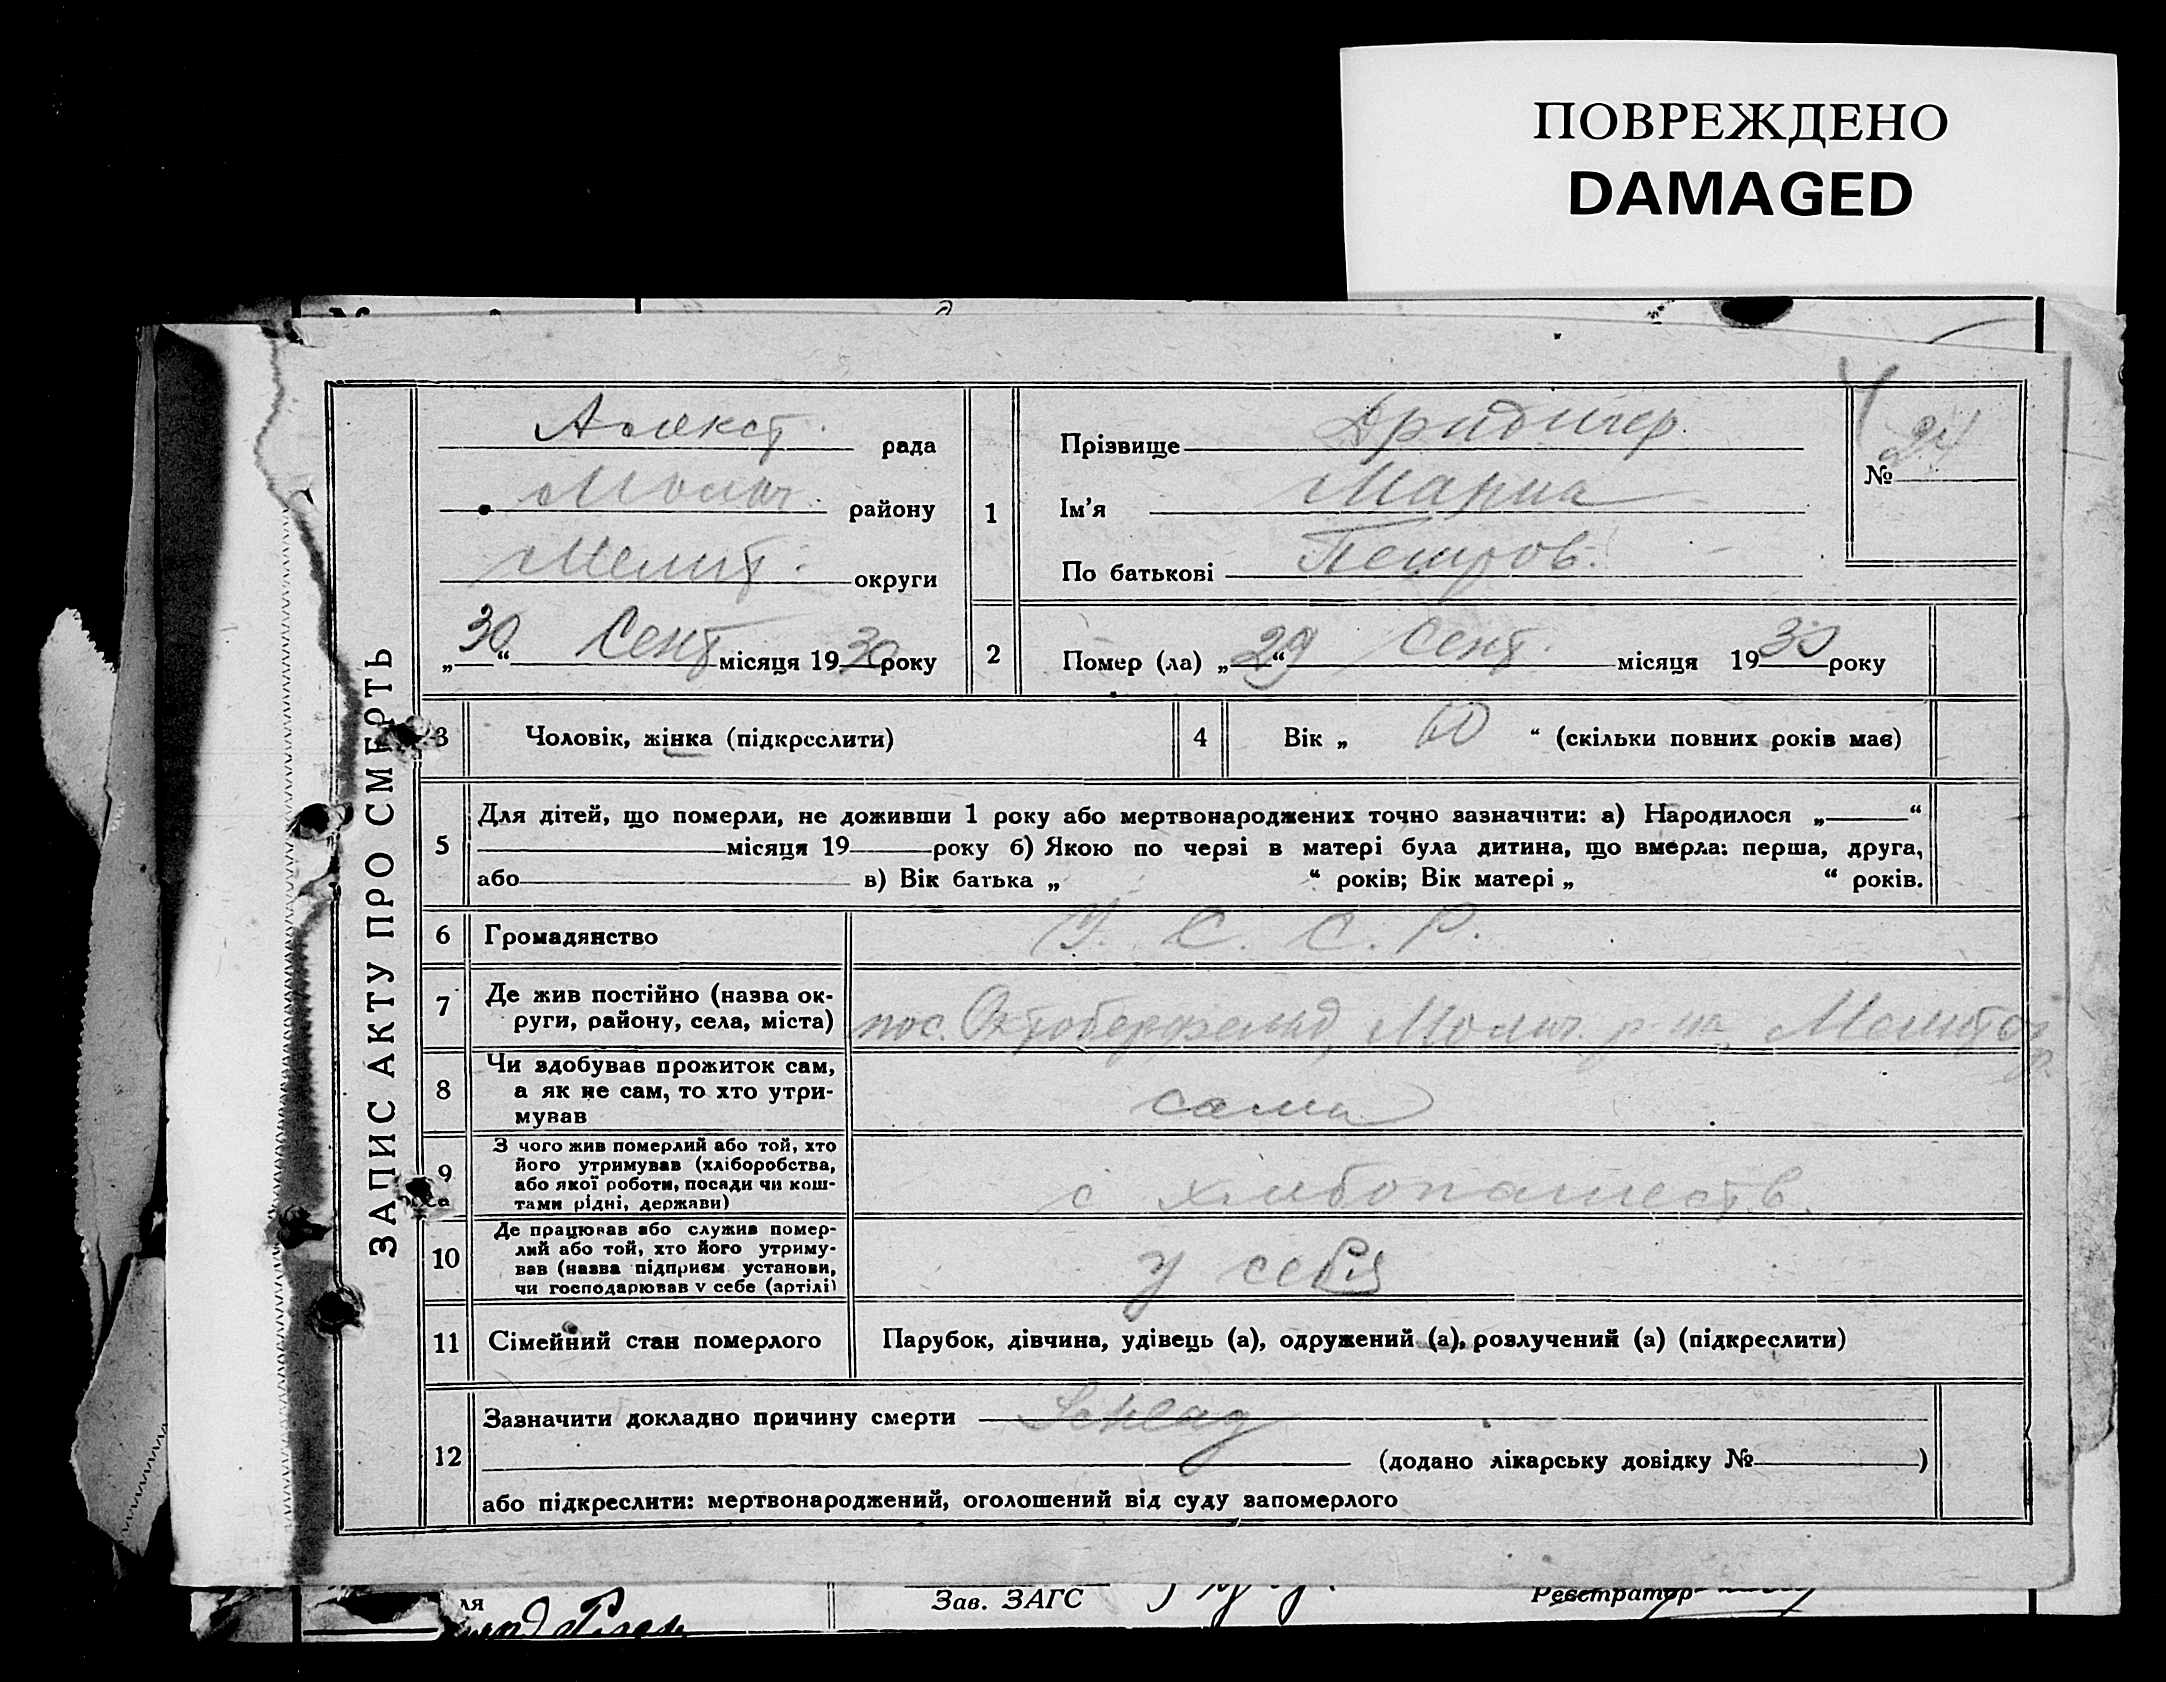 ПОВРЕЖДЕНО
DAMAGED
ЗАПИС АКТУ ПРО СМЕРТЬ
рада
Молоч. району
Мелит. округи
„30“ Сент місяця 1930 року
1
Прізвище Дридигер
Ім'я Мария
По батькові Петров.
№ 24
2
Помер (ла) „29“ Сент. місяця 1930 року
3
Чоловік, жінка (підкреслити)
4
Вік „ 60 “ (скільки повних років має)
5
Для дітей, що померли, не доживши 1 року або мертвонароджених точно зазначити: а) Народилося „ “
місяця 19 року б) Якою по черзі в матері була дитина, що вмерла: перша, друга,
або в) Вік батька „ “ років; Вік матері „ “ років.
6
Громадянство
У. С. С. Р.
7
Де жив постійно (назва ок-
руги, району, села, міста)
пос. Октоберфельд, Молоч. р-на, Мелитоп
8
Чи здобував прожиток сам,
а як не сам, то хто утри-
мував
сама
9
З чого жив померлий або той, хто
його утримував (хліборобства,
або якої роботи, посади чи кош-
тами рідні, держави)
с хлебопашеств.
10
Де працював або служив помер-
лий або той, хто його утриму-
вав (назва підприєм установи,
чи господарював у себе (артілі)
у себя
11
Сімейний стан померлого
Парубок, дівчина, удівець (а), одружений (а), розлучений (а) (підкреслити)
12
Зазначити докладно причину смерти
(додано лікарську довідку № )
або підкреслити: мертвонароджений, оголошений від суду запомерлого
ля
Зав. ЗАГС
Реєстратор